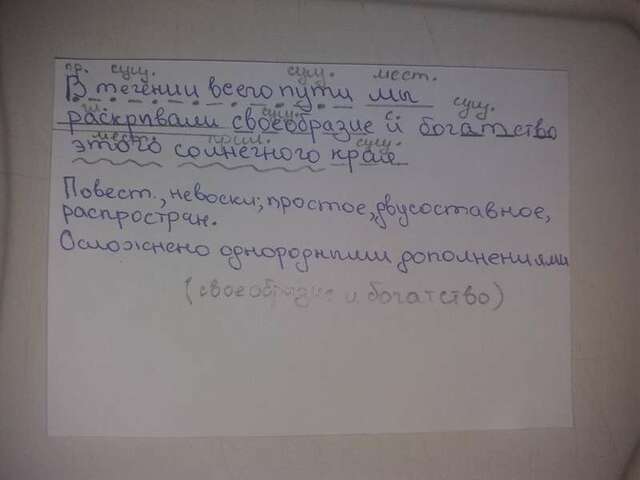 пр. сущ. сущ. мест.
В течении всего пути мы сущ.
гл. сущ. с.
раскрывали своеобразие и богатство
мест. прил. сущ.
этого солнечного края
Повест., невоскл; простое, двусоставное,
распростран.
Осложнено однородными дополнениями
(своеобразие и богатство)